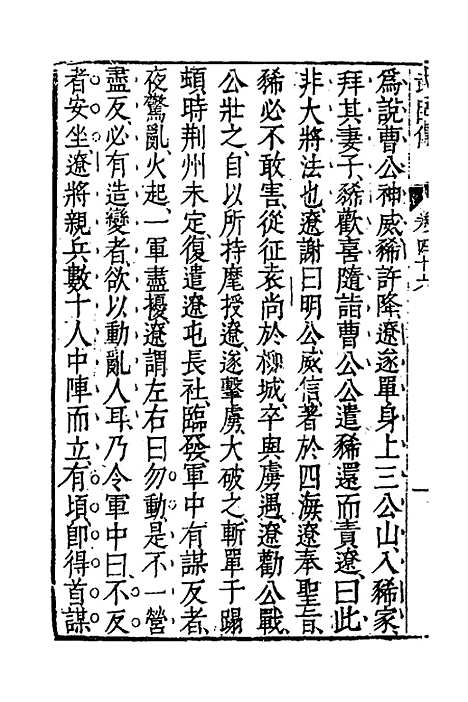 卷四十六
一
爲說曹公神威豨許降遼遂單身上三公山入豨家
拜其妻子豨歡喜隨詣曹公公遣豨還而責遼曰此
非大將法也遼謝曰明公威信著於四海遼奉聖旨
豨必不敢害從征袁尚於柳城卒與虜遇遼勸公戰
公壯之自以所持麾授遼遂擊虜大破之斬單于蹋
頓時荆州未定復遣遼屯長社臨發軍中有謀反者
夜驚亂火起一軍盡擾遼謂左右曰勿動是不一營
盡反必有造變者欲以動亂人耳乃令軍中曰不反
者安坐遼將親兵數十人中陣而立有頃即得首謀